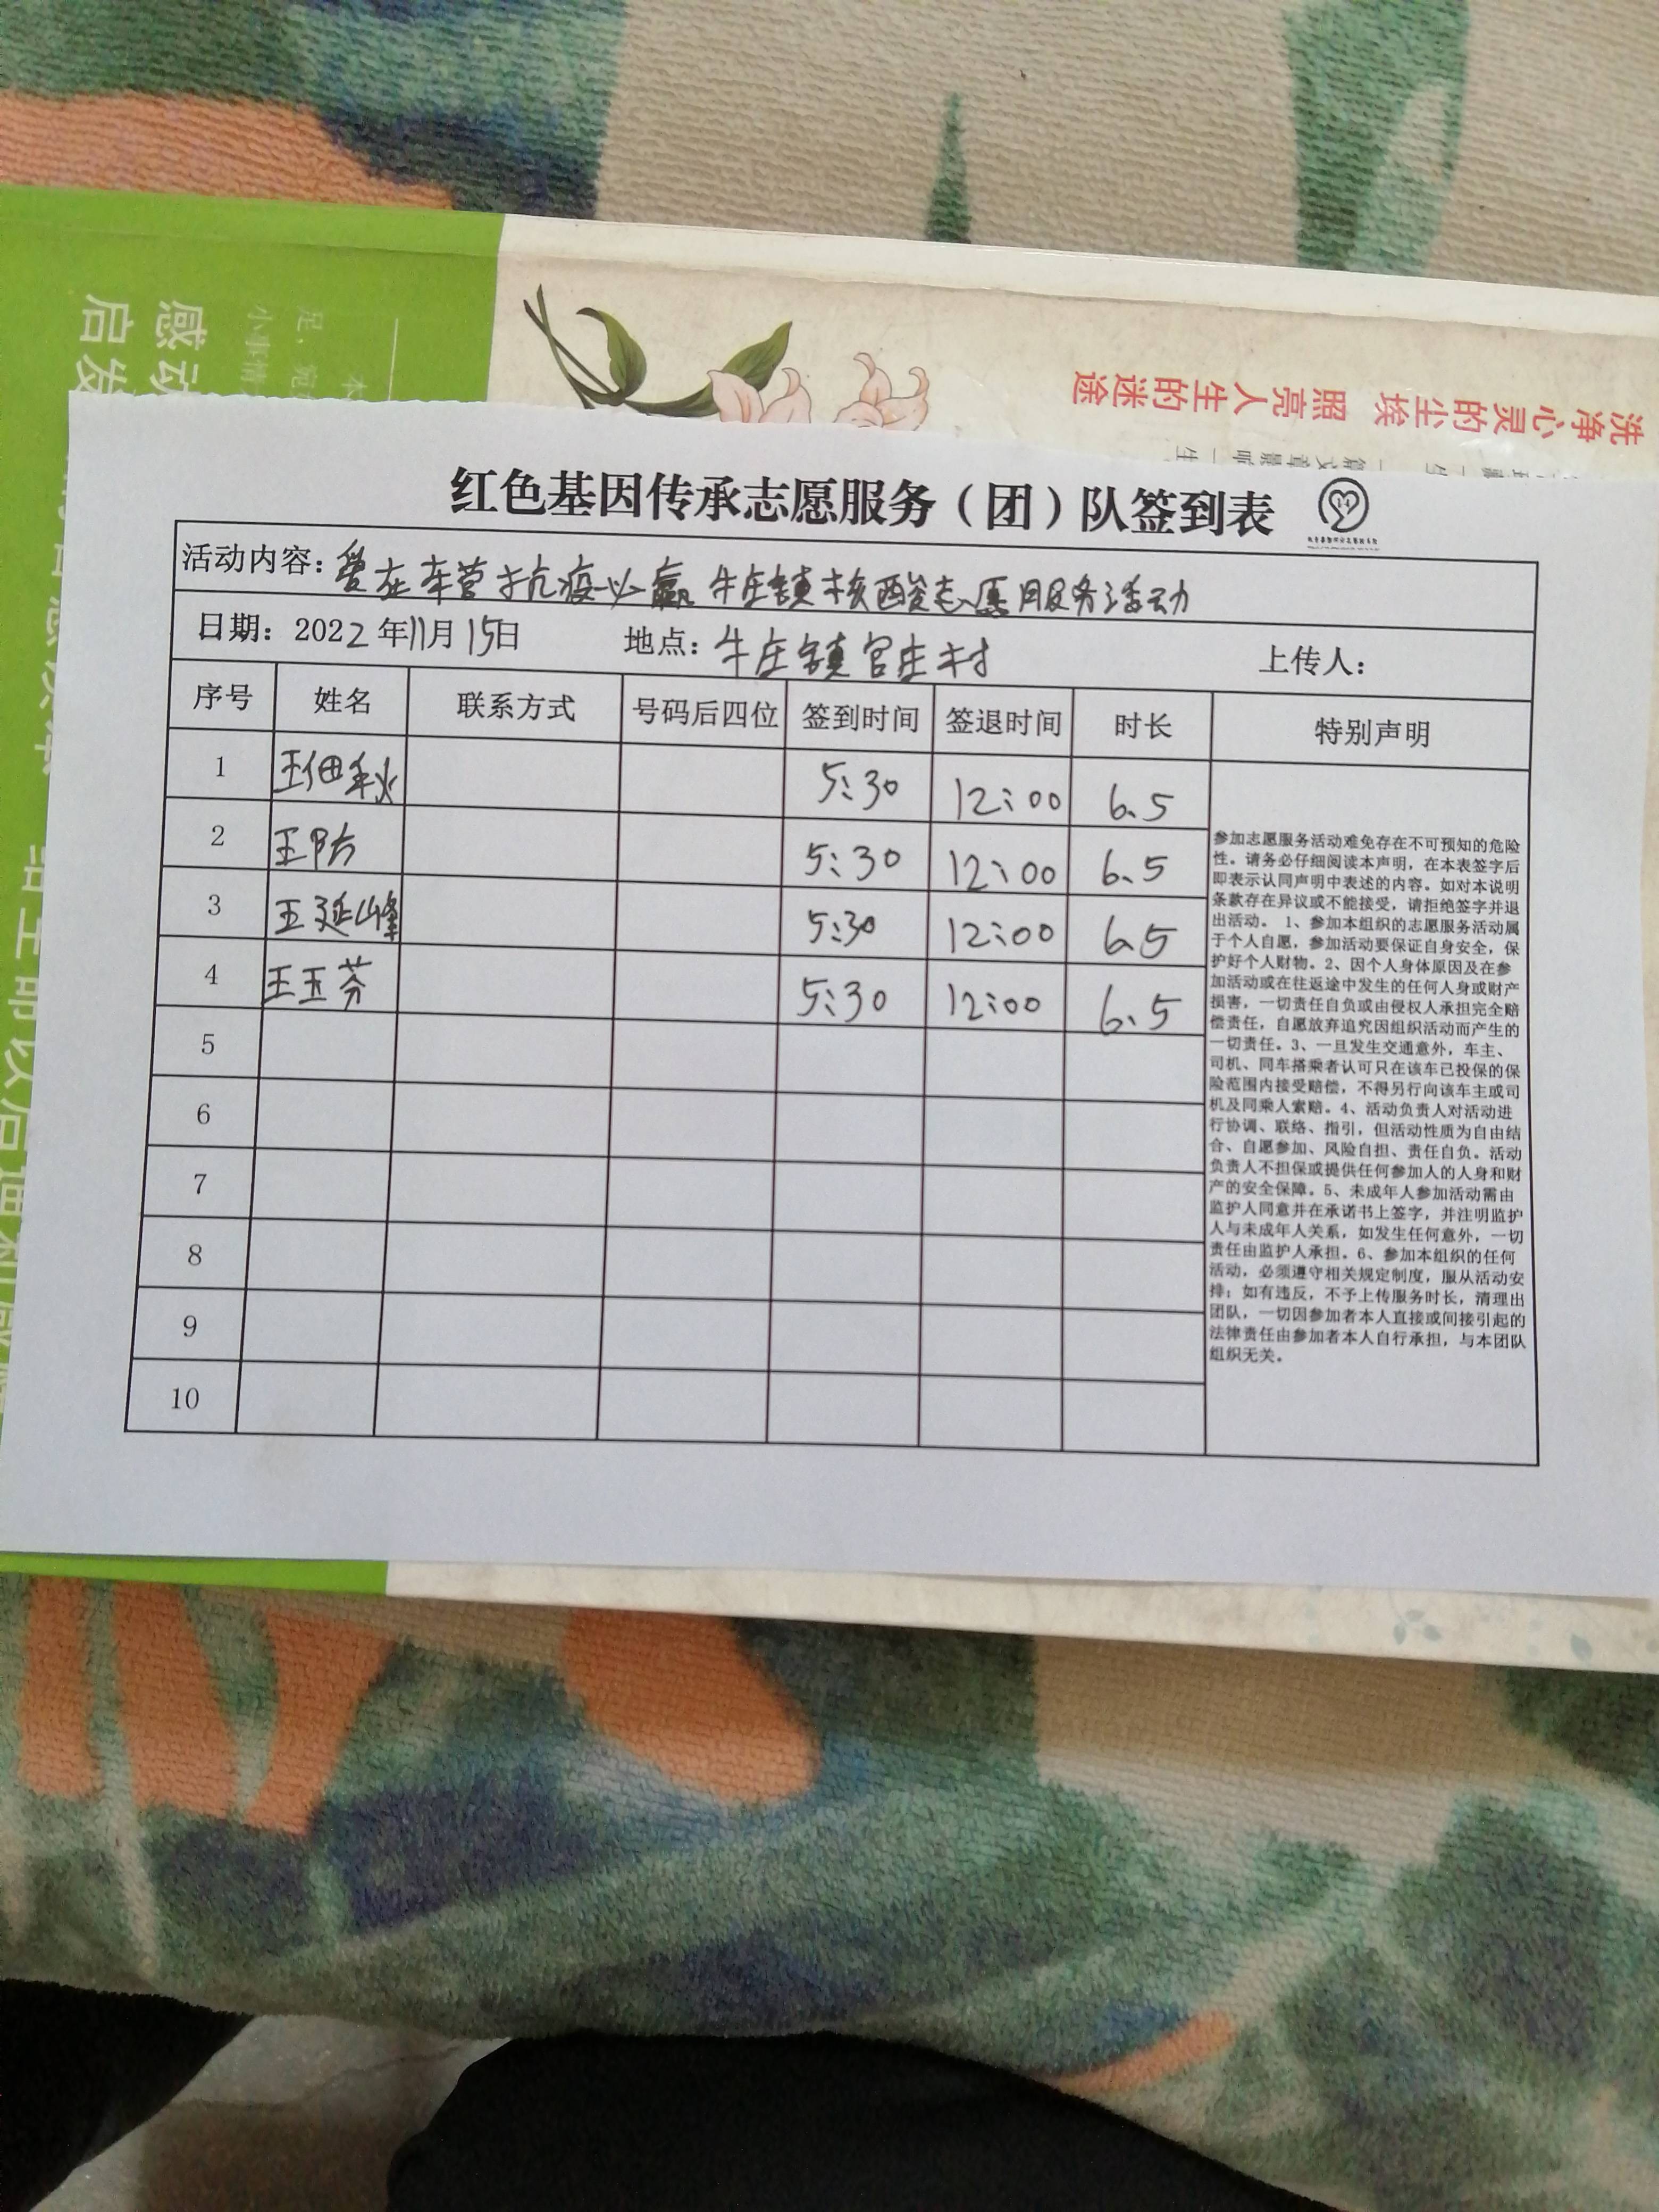 洗净心灵的尘埃 照亮人生的迷途
感动
启发
红色基因传承志愿服务（团）队签到表
活动内容：爱在东营 抗疫必赢 牛庄镇核酸志愿服务活动
日期：2022年11月15日 地点：牛庄镇官庄村 上传人：
序号 姓名 联系方式 号码后四位 签到时间 签退时间 时长 特别声明
1 王佃秋 5:30 12:00 6.5
2 王防 5:30 12:00 6.5
3 王延峰 5:30 12:00 6.5
4 王玉芬 5:30 12:00 6.5
5
6
7
8
9
10
参加志愿服务活动难免存在不可预知的危险
性。请务必仔细阅读本声明，在本表签字后
即表示认同声明中表述的内容。如对本说明
条款存在异议或不能接受，请拒绝签字并退
出活动。 1、参加本组织的志愿服务活动属
于个人自愿，参加活动要保证自身安全，保
护好个人财物。2、因个人身体原因及在参
加活动或在往返途中发生的任何人身或财产
损害，一切责任自负或由侵权人承担完全赔
偿责任，自愿放弃追究因组织活动而产生的
一切责任。3、一旦发生交通意外，车主、
司机、同车搭乘者认可只在该车已投保的保
险范围内接受赔偿，不得另行向该车主或司
机及同乘人索赔。4、活动负责人对活动进
行协调、联络、指引，但活动性质为自由结
合、自愿参加、风险自担、责任自负。活动
负责人不担保或提供任何参加人的人身和财
产的安全保障。5、未成年人参加活动需由
监护人同意并在承诺书上签字，并注明监护
人与未成年人关系，如发生任何意外，一切
责任由监护人承担。6、参加本组织的任何
活动，必须遵守相关规定制度，服从活动安
排；如有违反，不予上传服务时长，清理出
团队，一切因参加者本人直接或间接引起的
法律责任由参加者本人自行承担，与本团队
组织无关。